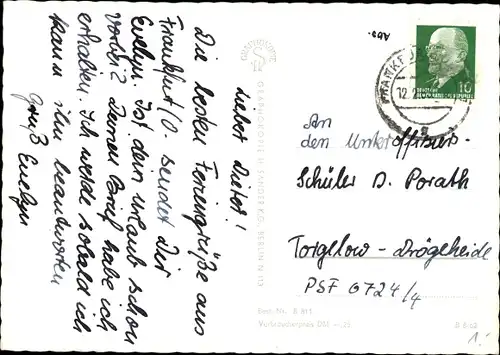 Lieber Dieter!
Die besten Feriengrüße aus
Frankfurt/O. sendet Dir
Evelyn. Ist dein Urlaub schon
vorbei? Deinen Brief habe ich
erhalten. Ich werde sobald ich
kann ihn beantworten
Gruß Evelyn
GRAPHOKOPIE H. SANDER KG., BERLIN N 113
Best.-Nr. B 811
Verbraucherpreis DM -,25
Abs.
FRANKFURT
12.2
10
DEUTSCHE
DEMOKRATISCHE REPUBLIK
An
den Unteroffiziers-
Schüler D. Porath
Torgelow-Drögeheide
PSF 6724/4
B 8/62
1.-